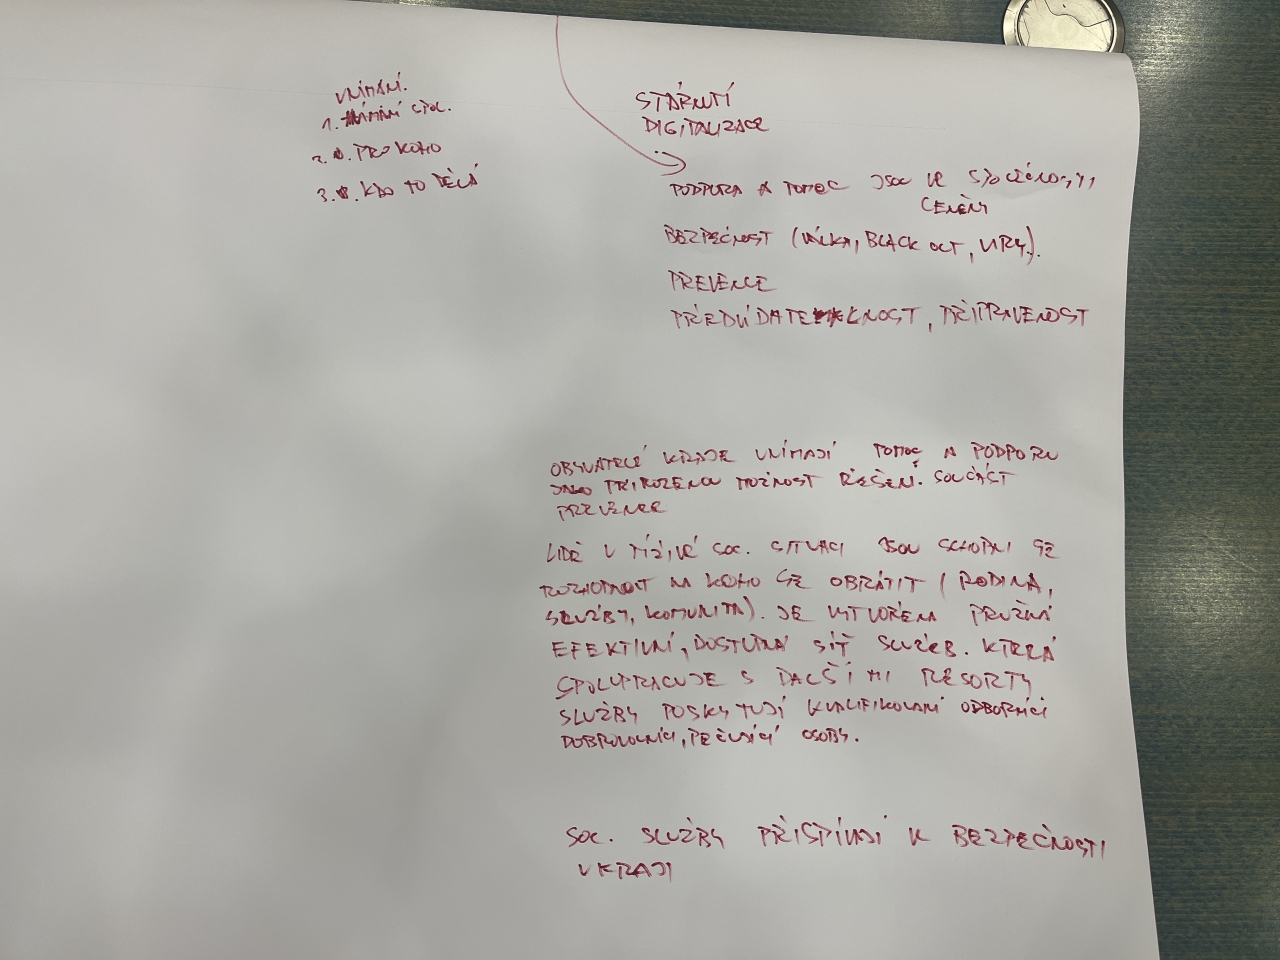 VNÍMÁNÍ.
1. VNÍMÁNÍ SPOL.
2. PRO KOHO
3. KDO TO DĚLÁ
STÁRNUTÍ
DIGITALIZACE
PODPORA A POMOC JSOU VE SPOLEČNOSTI
CENĚNY
BEZPEČNOST (VÁLKA, BLACK OUT, VIRY).
PREVENCE
PŘEDVÍDATELNOST, PŘIPRAVENOST
OBYVATELÉ KRAJE VNÍMAJÍ POMOC A PODPORU
JAKO PŘIROZENOU MOŽNOST ŘEŠENÍ. SOUČÁST
PREVENCE
LIDÉ V TÍŽIVÉ SOC. SITUACI JSOU SCHOPNI SE
ROZHODNOUT NA KOHO SE OBRÁTIT (RODINA,
SLUŽBY, KOMUNITA). JE VYTVOŘENA PRUŽNÁ
EFEKTIVNÍ, DOSTUPNÁ SÍŤ SLUŽEB. KTERÁ
SPOLUPRACUJE S DALŠÍMI RESORTY
SLUŽBY POSKYTUJÍ KVALIFIKOVANÍ ODBORNÍCI
DOBROVOLNÍCI, PEČUJÍCÍ OSOBY.
SOC. SLUŽBY PŘISPÍVAJÍ K BEZPEČNOSTI
V KRAJI